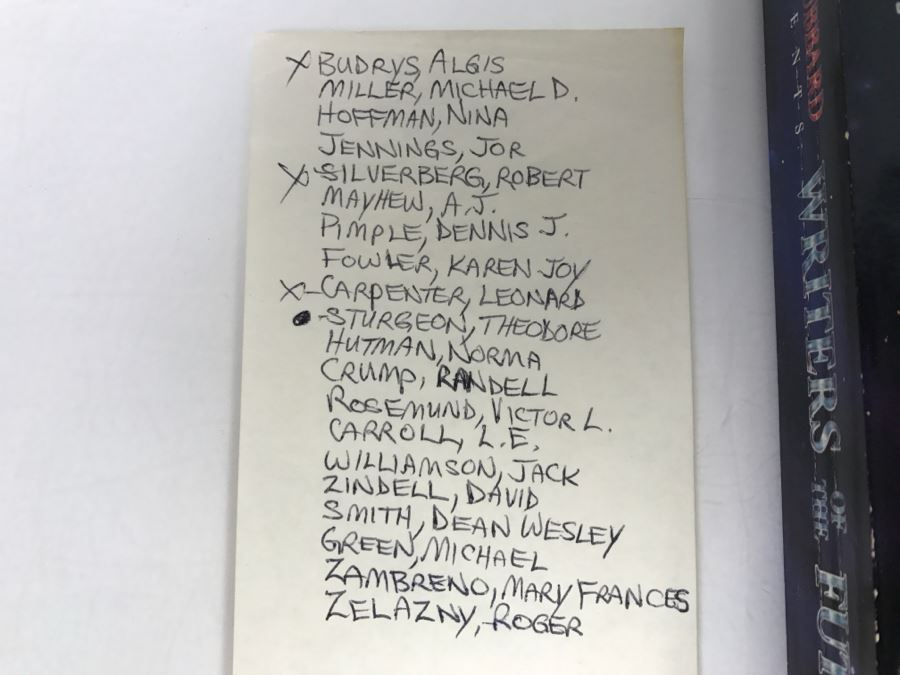 X BUDRYS, ALGIS
MILLER, MICHAEL D.
HOFFMAN, NINA
JENNINGS, JOR
X-SILVERBERG, ROBERT
MAYHEW, A.J.
PIMPLE, DENNIS J.
FOWLER, KAREN JOY
X-CARPENTER, LEONARD
●-STURGEON, THEODORE
HUTMAN, NORMA
CRUMP, RANDELL
ROSEMUND, VICTOR L.
CARROLL, L.E.
WILLIAMSON, JACK
ZINDELL, DAVID
SMITH, DEAN WESLEY
GREEN, MICHAEL
ZAMBRENO, MARY FRANCES
ZELAZNY, ROGER
WRITERS OF THE